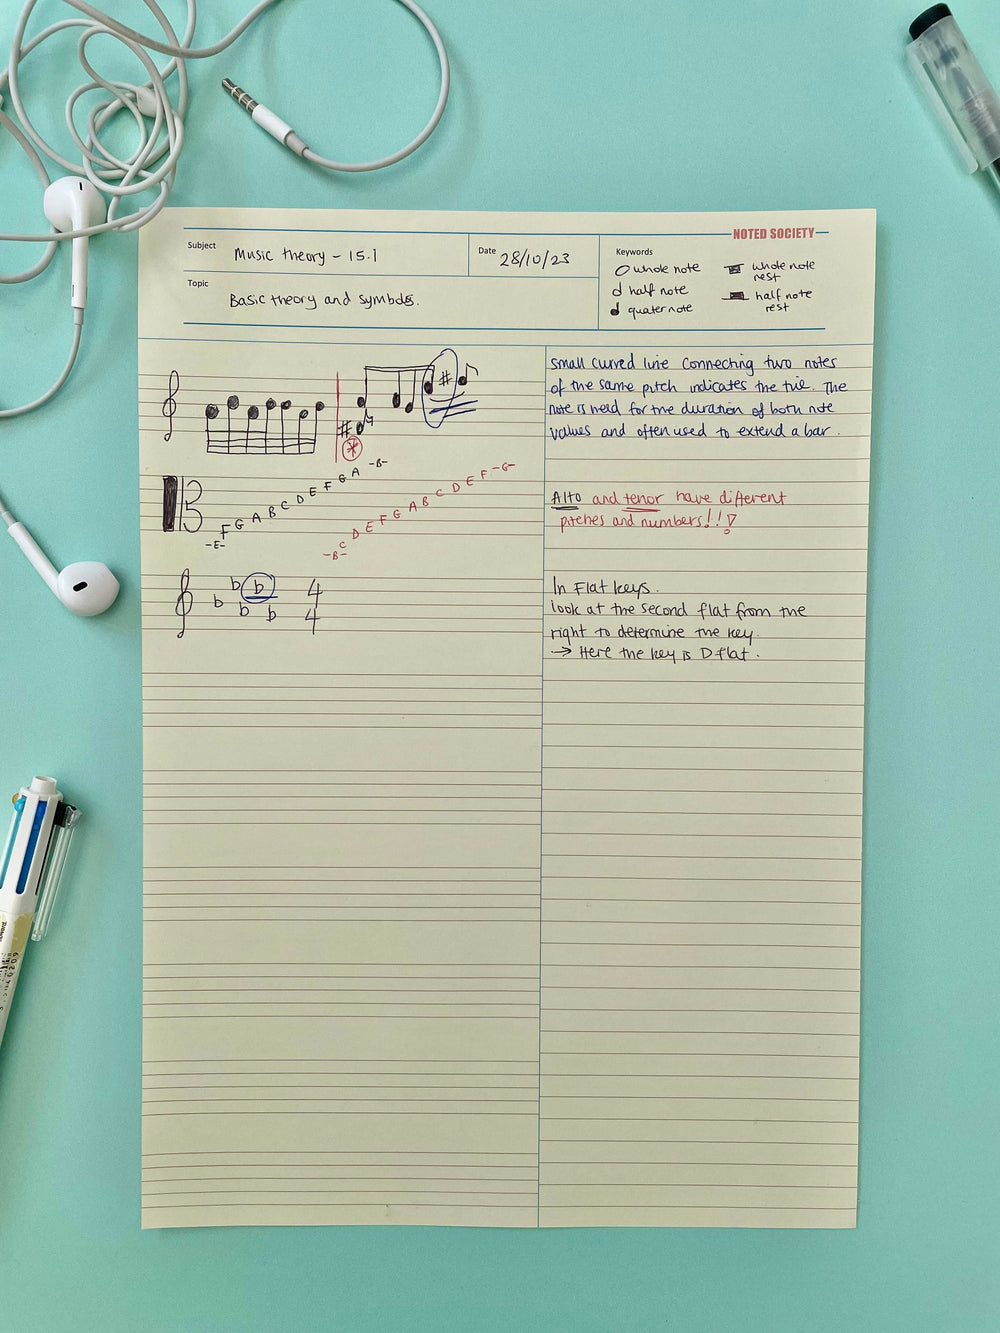 NOTED SOCIETY
Subject Music theory - 15.1
Date 28/10/23
Topic
Basic theory and symbols.
Keywords
whole note
half note
quater note
whole note
rest
half note
rest
small curved line connecting two notes
of the same pitch indicates the tie. The
note is held for the duration of both note
values and often used to extend a bar.
-E- F G A B C D E F G A -B-
-B- C D E F G A B C D E F -G-
Alto and tenor have different
pitches and numbers!!!
4
4
In Flat keys.
look at the second flat from the
right to determine the key.
→ Here the key is D flat.